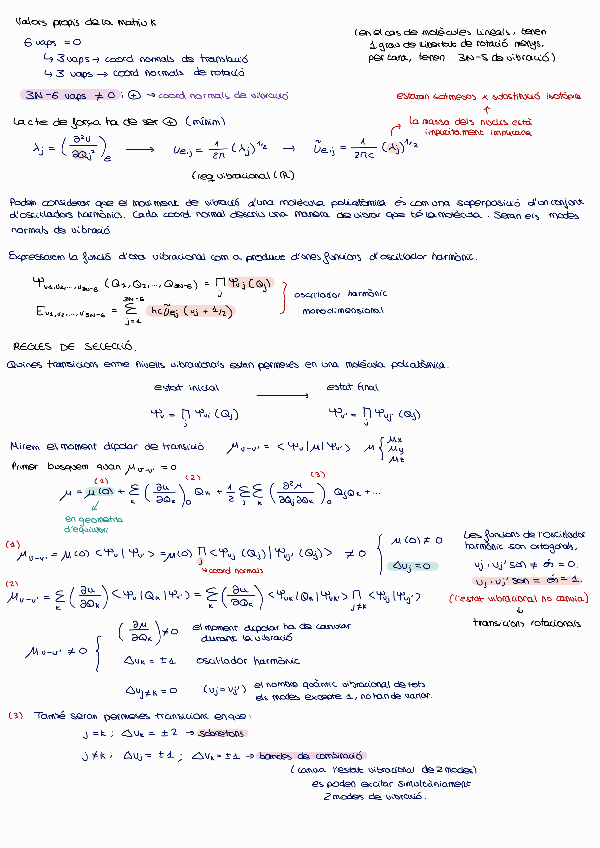 Valors propis de la matriu K
(en el cas de molècules lineals, tenen
1 grau de llibertat de rotació menys,
per tant, tenen 3N-5 de vibració)
6 vaps = 0
↳ 3 vaps → coord normals de translació
↳ 3 vaps → coord normals de rotació
3N-6 vaps ≠ 0 i ⊕ → coord normals de vibració
estaran sotmesos x substitució isotòpica
↑
la massa dels nuclis està
implícitament implicada
La cte de força ha de ser ⊕ (mínim)
λj = (∂²U/∂Qj²)e → νe,j = 1/2π (λj)^1/2 → ν̃e,j = 1/2πc (λj)^1/2
(reg vibracional (IR)
Podem considerar que el moviment de vibració d'una molècula poliatòmica és com una superposició d'un conjunt
d'oscil·ladors harmònics. Cada coord normal descriu una manera de vibrar que té la molècula. Seran els modes
normals de vibració
Expressarem la funció d'ona vibracional com a producte d'ones funcions d'oscil·lador harmònic.
Ψv1,v2,...,v3N-6 (Q1,Q2,...,Q3N-6) = ∏j Ψvj(Qj)
Ev1,v2,...,v3N-6 = Σ(j=1, 3N-6) hcν̃ej (vj + 1/2)
oscil·lador harmònic
monodimensional
REGLES DE SELECCIÓ.
Quines transicions entre nivells vibracionals estan permeses en una molècula poliatòmica.
estat inicial → estat final
Ψv = ∏j Ψvj (Qj) Ψv' = ∏j Ψvj' (Qj)
Mirem el moment dipolar de transició. μv-v' = <Ψv|μ|Ψv'> μ { μx μy μz
Primer busquem quan μv-v' = 0
(1) (2) (3)
μ = μ(0) + Σk (∂μ/∂Qk)0 Qk + 1/2 Σj Σk (∂²μ/∂Qj∂Qk)0 QjQk + ...
en geometria
d'equilibri
(1) μv-v' = μ(0) <Ψv|Ψv'> = μ(0) ∏j <Ψvj (Qj)|Ψvj' (Qj)> ≠ 0 { μ(0) ≠ 0
Δvj = 0
↳ coord normals
Les funcions de l'oscil·lador
harmònic són ortogonals,
vj i vj' són ≠ és = 0.
vj i vj' són = és = 1.
(l'estat vibracional no canvia)
↓
transicions rotacionals
(2) μv-v' = Σk (∂μ/∂Qk) <Ψv|Qk|Ψv'> = Σk (∂μ/∂Qk) <Ψvk|Qk|Ψvk'> ∏j≠k <Ψvj|Ψvj'>
μv-v' ≠ 0 { (∂μ/∂Qk)≠0 el moment dipolar ha de canviar
durant la vibració
Δvk = ±1 oscil·lador harmònic
Δvj≠k = 0 (vj=vj') el nombre quàntic vibracional de tots
els modes excepte 1, no han de variar.
(3) També seran permeses transicions en que:
j=k ; Δvk = ±2 → sobretons
j≠k ; Δvj = ±1 ; Δvk = ±1 → bandes de combinació
(canvia l'estat vibracional de 2 modes)
es poden excitar simultàniament
2 modes de vibració.